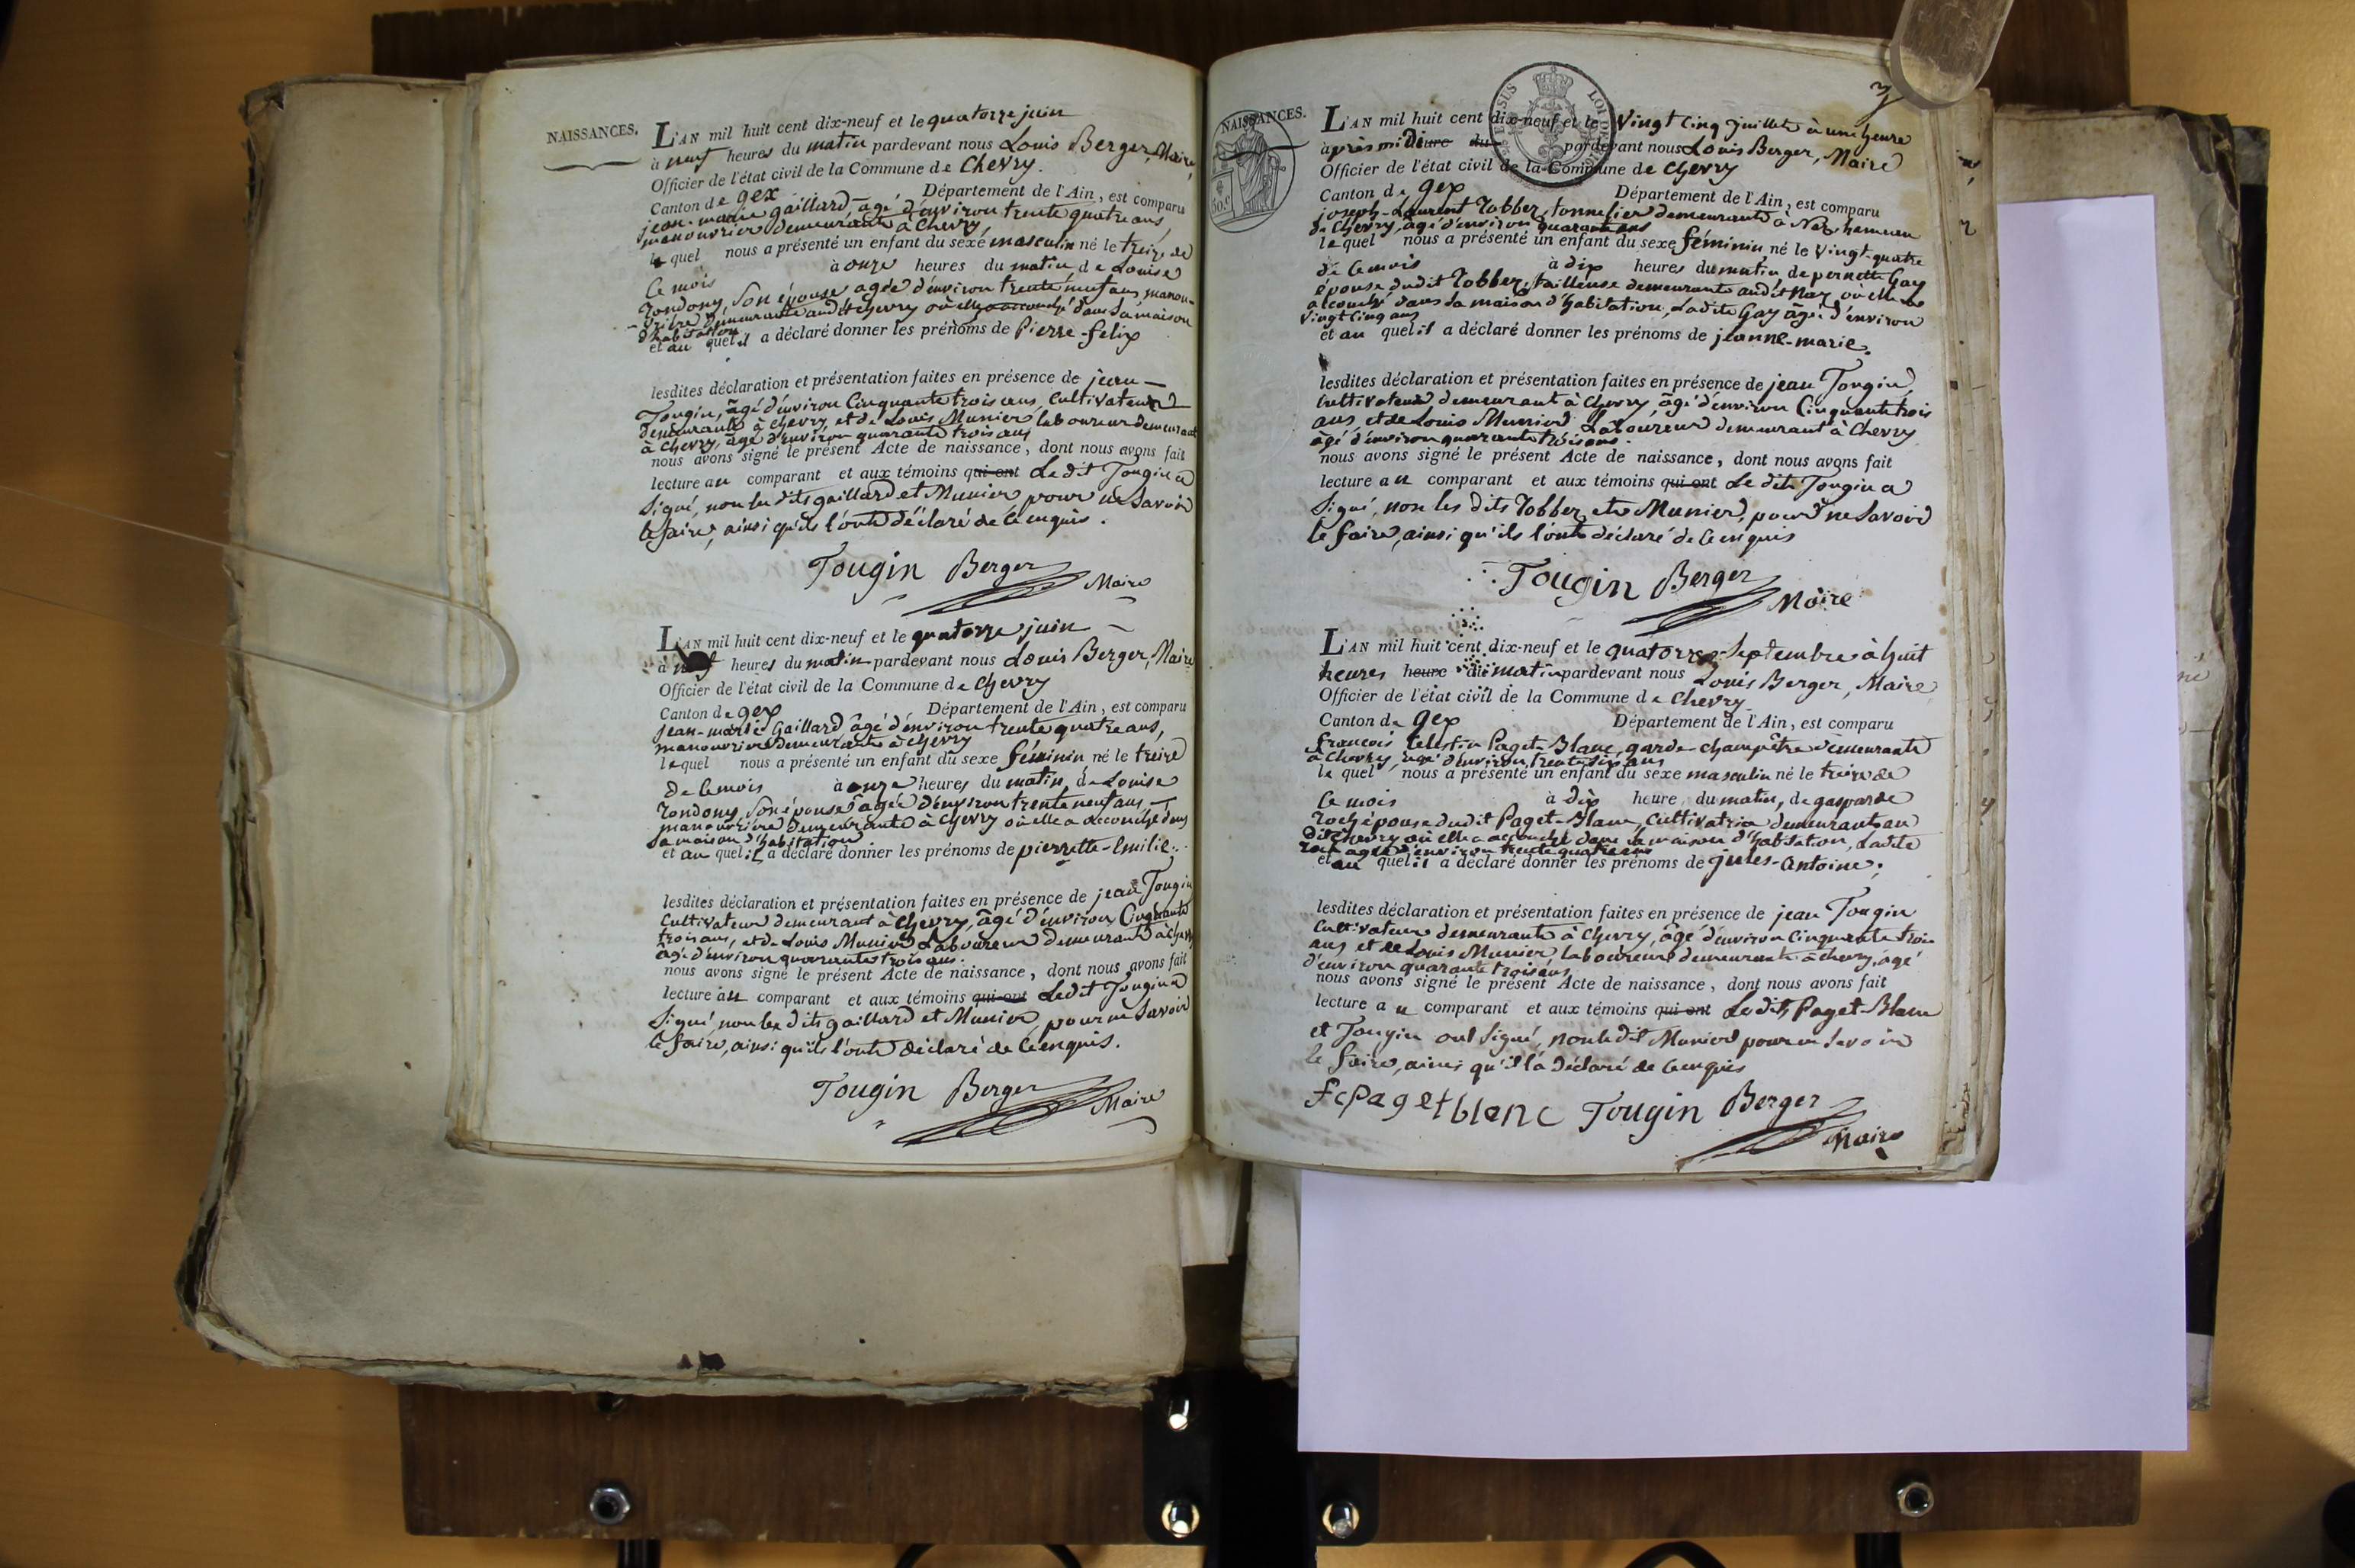 NAISSANCES.
L'AN mil huit cent dix-neuf et le quatorze juin
à neuf heures du matin pardevant nous Louis Berger, Maire,
Officier de l'état civil de la Commune de Chevry.
Canton de gex Département de l'Ain, est comparu
jean-marie gaillard âgé d'environ trente quatre ans,
manouvrier demeurant à Chevry,
lequel nous a présenté un enfant du sexe masculin né le treize de
ce mois à onze heures du matin, de Louise
Rondony, son épouse agée d'environ trente neuf ans, manou-
-vrière demeurante audit chevry où elle a accouché dans sa maison
d'habitation
et au quel il a déclaré donner les prénoms de Pierre-felix
lesdites déclaration et présentation faites en présence de jean
Tougin, âgé d'environ Cinquante trois ans, Cultivateur
demeurant à chevry, et de Louis Munier laboureur demeurant
à Chevry, âgé d'environ quarante trois ans
nous avons signé le présent Acte de naissance, dont nous avons fait
lecture au comparant et aux témoins qui ont Ledit Tougin a
signé, non les dits gaillard et Munier pour ne savoir
le faire, ainsi qu'ils l'ont déclaré de ce enquis.
Tougin Berger
Maire
L'AN mil huit cent dix-neuf et le quatorze juin
à neuf heures du matin pardevant nous Louis Berger, Maire
Officier de l'état civil de la Commune de Chevry
Canton de gex Département de l'Ain, est comparu
jean-marie Gaillard âgé d'environ trente quatre ans,
manouvrier demeurant à chevry
lequel nous a présenté un enfant du sexe féminin né le treize
de ce mois à onze heures du matin, de Louise
Rondony, son épouse agée d'environ trente neuf ans,
manouvrière demeurante à Chevry où elle a accouché dans
sa maison d'habitation
et au quel il a déclaré donner les prénoms de pierrette-Emilie.
lesdites déclaration et présentation faites en présence de jean Tougin
Cultivateur demeurant à Chevry, âgé d'environ Cinquante
trois ans, et de Louis Munier Laboureur demeurant à Chevry
âgé d'environ quarante trois ans.
nous avons signé le présent Acte de naissance, dont nous avons fait
lecture au comparant et aux témoins qui ont Ledit Tougin a
signé, non les dits gaillard et Munier, pour ne savoir
le faire, ainsi qu'ils l'ont déclaré de ce enquis.
Tougin Berger
Maire
3
NAISSANCES.
50.c
L'AN mil huit cent dix-neuf et le Vingt Cinq juillet à une heure
après midi heure du pardevant nous Louis Berger, Maire
Officier de l'état civil de la Commune de Chevry
Canton de gex Département de l'Ain, est comparu
joseph-Laurent Robbez, tonnelier demeurant à Naz hameau
de Chevry, âgé d'environ quarante ans
lequel nous a présenté un enfant du sexe féminin né le Vingt-quatre
de ce mois à dix heures du matin de pernette Gay
épouse dudit Robbez, tailleuse demeurante audit Naz où elle a
accouché dans sa maison d'habitation, Ladite Gay âgée d'environ
Vingt Cinq ans
et au quel il a déclaré donner les prénoms de jeanne-marie.
lesdites déclaration et présentation faites en présence de jean Tougin,
Cultivateur demeurant à Chevry, âgé d'environ Cinquante trois
ans, et de Louis Munier Laboureur demeurant à Chevry
âgé d'environ quarante trois ans.
nous avons signé le présent Acte de naissance, dont nous avons fait
lecture au comparant et aux témoins qui ont Le dit Tougin a
signé, non les dits Robbez et Munier, pour ne savoir
le faire, ainsi qu'ils l'ont déclaré de ce enquis
Tougin Berger
Maire
L'AN mil huit cent dix-neuf et le quatorze Septembre à huit
heures heure du matin pardevant nous Louis Berger, Maire
Officier de l'état civil de la Commune de Chevry
Canton de gex Département de l'Ain, est comparu
françois Celestin Paget-Blanc, garde-champêtre demeurant
à Chevry, âgé d'environ trente six ans
lequel nous a présenté un enfant du sexe masculin né le treize de
ce mois à dix heure du matin, de gasparde
Roch épouse dudit Paget-Blanc, Cultivatrice demeurante au
dit Chevry où elle a accouché dans sa maison d'habitation, Ladite
Roch agée d'environ trente quatre ans
et au quel il a déclaré donner les prénoms de jules-Antoine;
lesdites déclaration et présentation faites en présence de jean Tougin
Cultivateur demeurant à Chevry, âgé d'environ Cinquante trois
ans et de Louis Munier laboureur demeurant à chevry, agé
d'environ quarante trois ans
nous avons signé le présent Acte de naissance, dont nous avons fait
lecture au comparant et aux témoins qui ont Ledit Paget-Blanc
et Tougin ont signé, non ledit Munier pour ne savoir
le faire, ainsi qu'il l'a déclaré de ce enquis
fcpagetblanc Tougin Berger
Maire